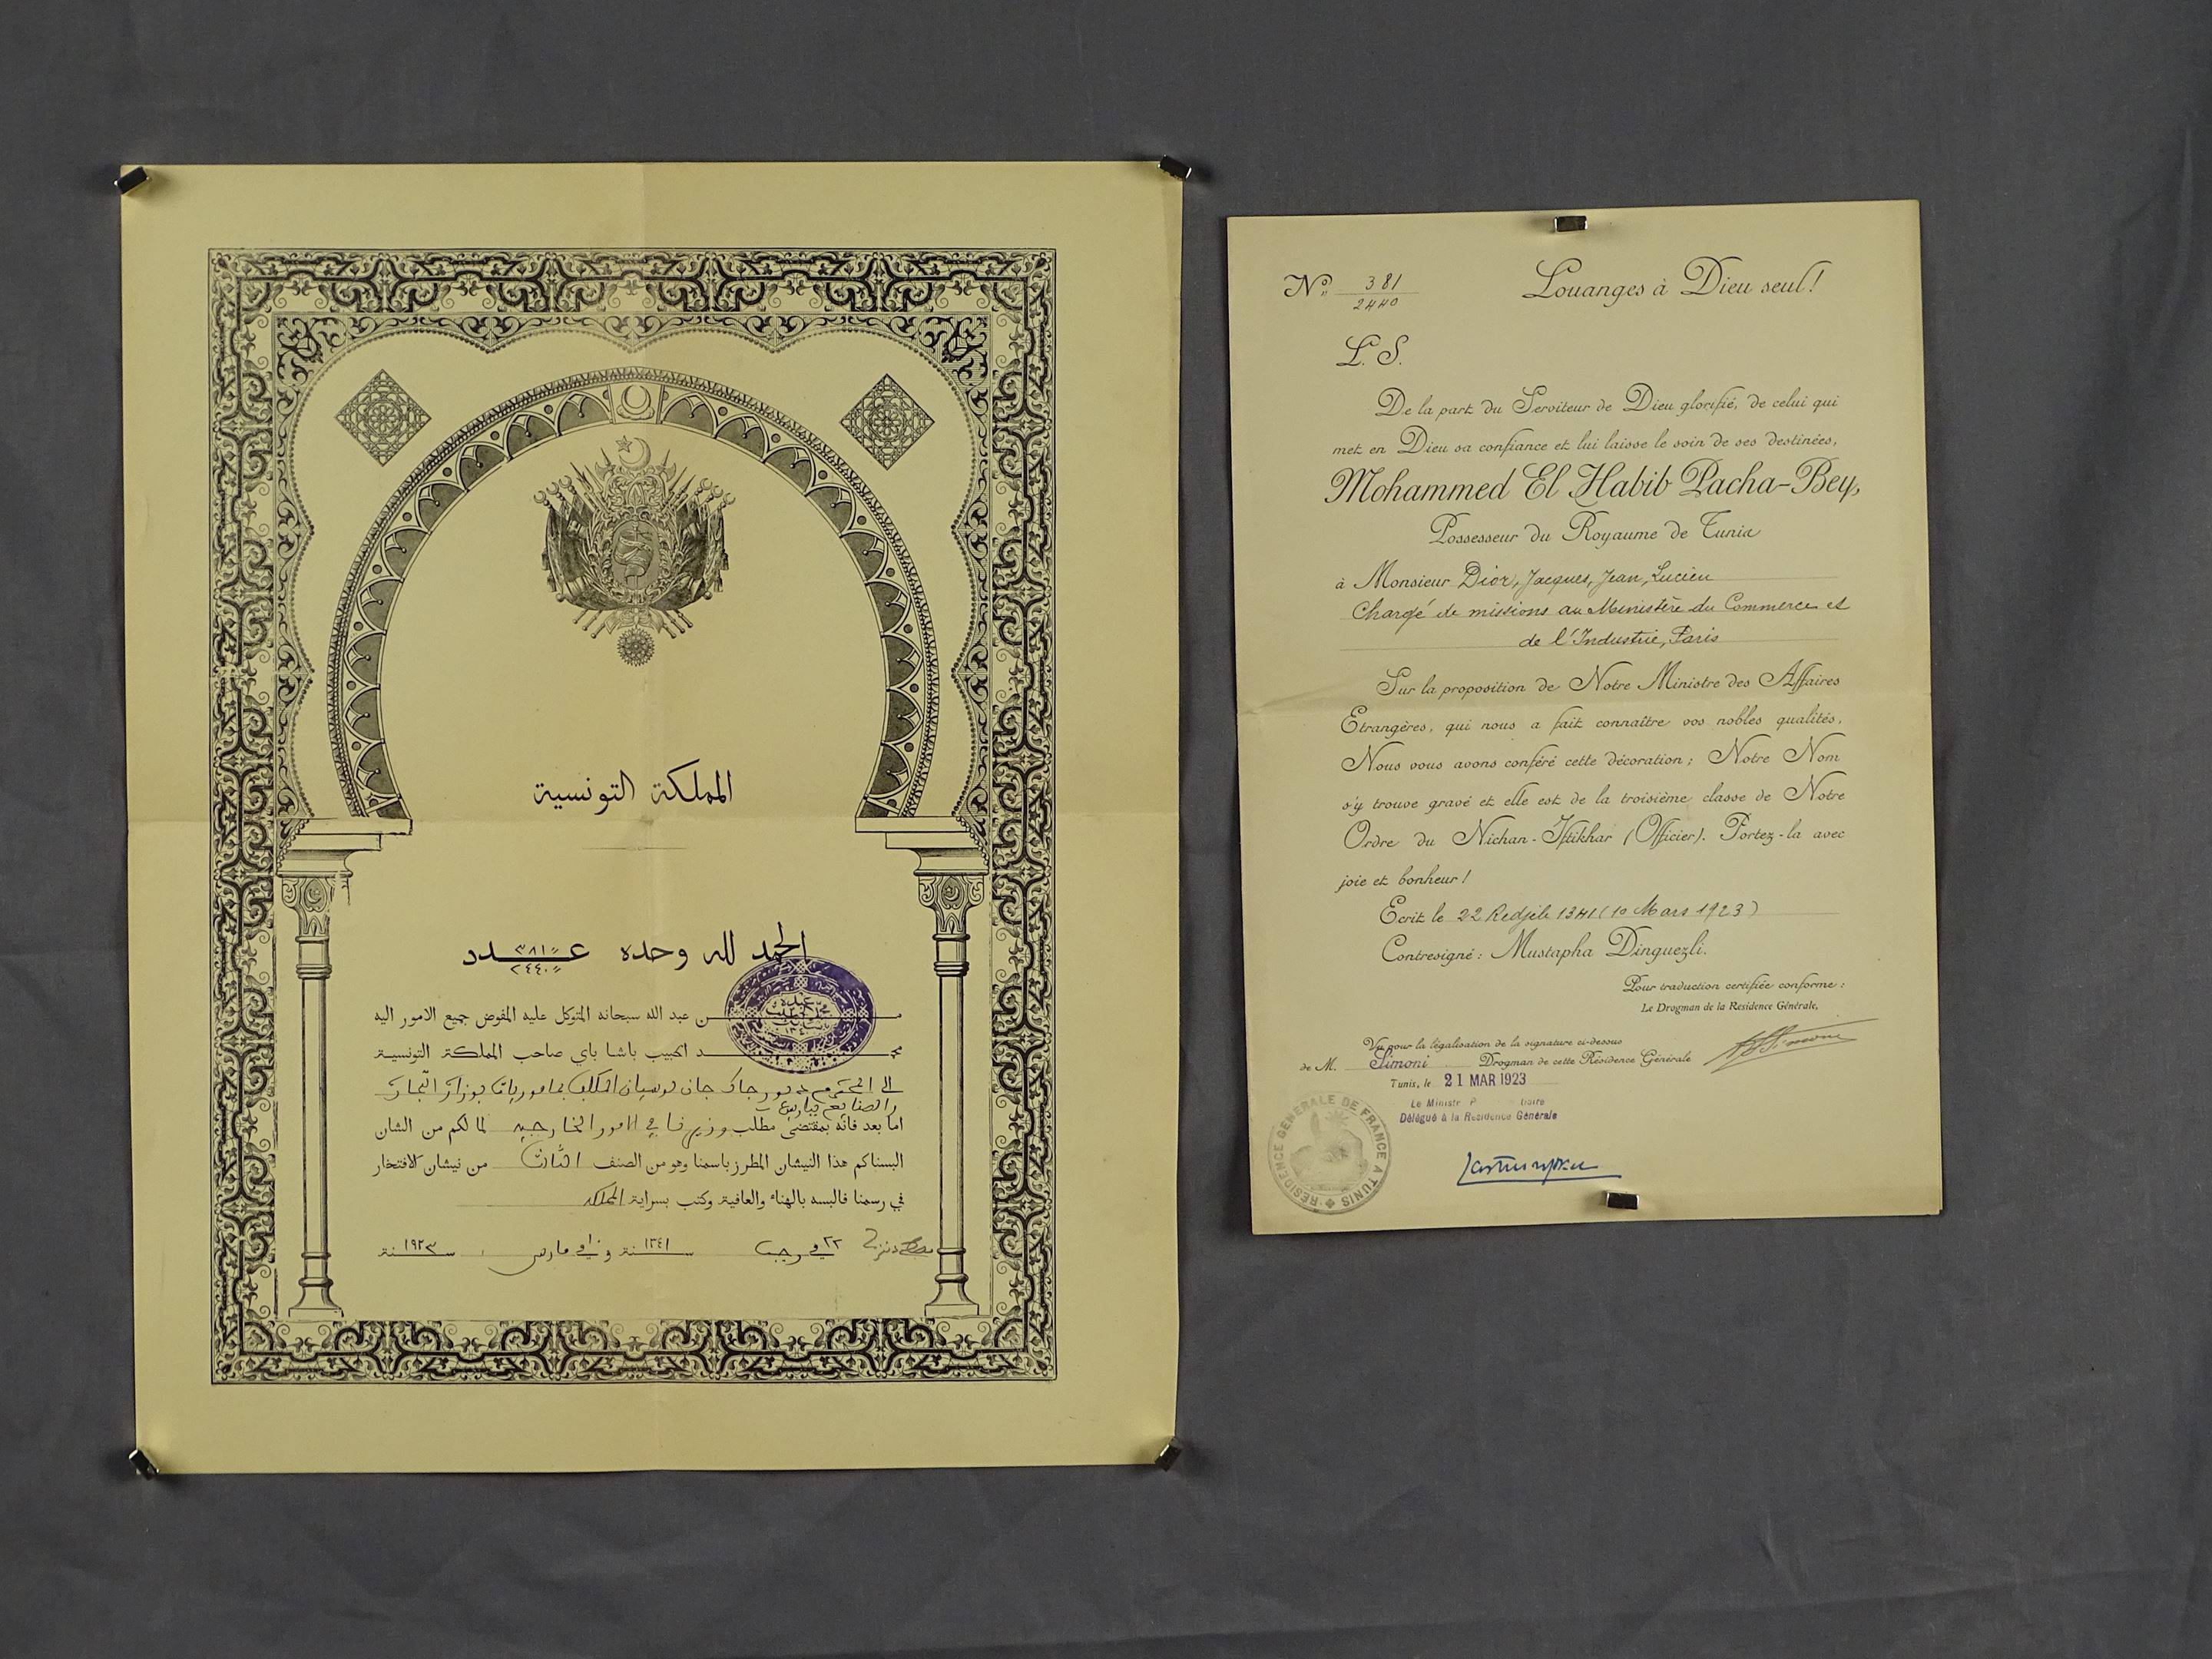 المملكة التونسية
الحمد لله وحده عدد ٣٨١
٢٤٤٠
من عبد الله سبحانه المتوكل عليه المفوض جميع الامور اليه
محمد الحبيب باشا باي صاحب المملكة التونسية
الى المحترم ديور جاك جان لوسيان المكلف بماموريات بوزارة التجارة
والصنايع بباريس
اما بعد فانه بمقتضى مطلب وزيرنا في الامور الخارجية لما لكم من الشان
البسناكم هذا النيشان المطرز باسمنا وهو من الصنف الثالث من نيشان الافتخار
في رسمنا فالبسه بالهناء والعافية وكتب بسراية المملكة
في ٢٢ رجب سنة ١٣٤١ و في مارس سنة ١٩٢٣
No 381
2440
Louanges à Dieu seul !
L. S.
De la part du Serviteur de Dieu glorifié, de celui qui
met en Dieu sa confiance et lui laisse le soin de ses destinées,
Mohammed El Habib Pacha-Bey,
Possesseur du Royaume de Tunis
à Monsieur Dior, Jacques, Jean, Lucien
Chargé de missions au Ministère du Commerce et
de l'Industrie, Paris
Sur la proposition de Notre Ministre des Affaires
Etrangères, qui nous a fait connaître vos nobles qualités,
Nous vous avons conféré cette décoration ; Notre Nom
s'y trouve gravé et elle est de la troisième classe de Notre
Ordre du Nichan-Iftikhar (Officier). Portez-la avec
joie et bonheur !
Ecrit le 22 Redjeb 1341 (10 Mars 1923)
Contresigné : Mustapha Dinguezli.
Pour traduction certifiée conforme :
Le Drogman de la Résidence Générale,
Vu pour la légalisation de la signature ci-dessus
de M. Simoni Drogman de cette Résidence Générale
Tunis, le 21 MAR 1923
Le Ministr
Délégué à la Residence Générale
RÉSIDENCE GÉNÉRALE DE FRANCE A TUNIS